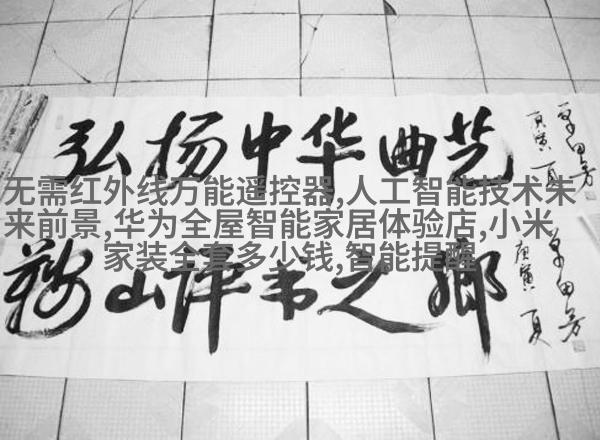 弘扬中华曲艺
单田芳
庚寅 夏
无需红外线万能遥控器,人工智能技术未
来前景,华为全屋智能家居体验店,小米
家装全套多少钱,智能提醒
鞍山评书之鄉
单田芳
庚寅 夏